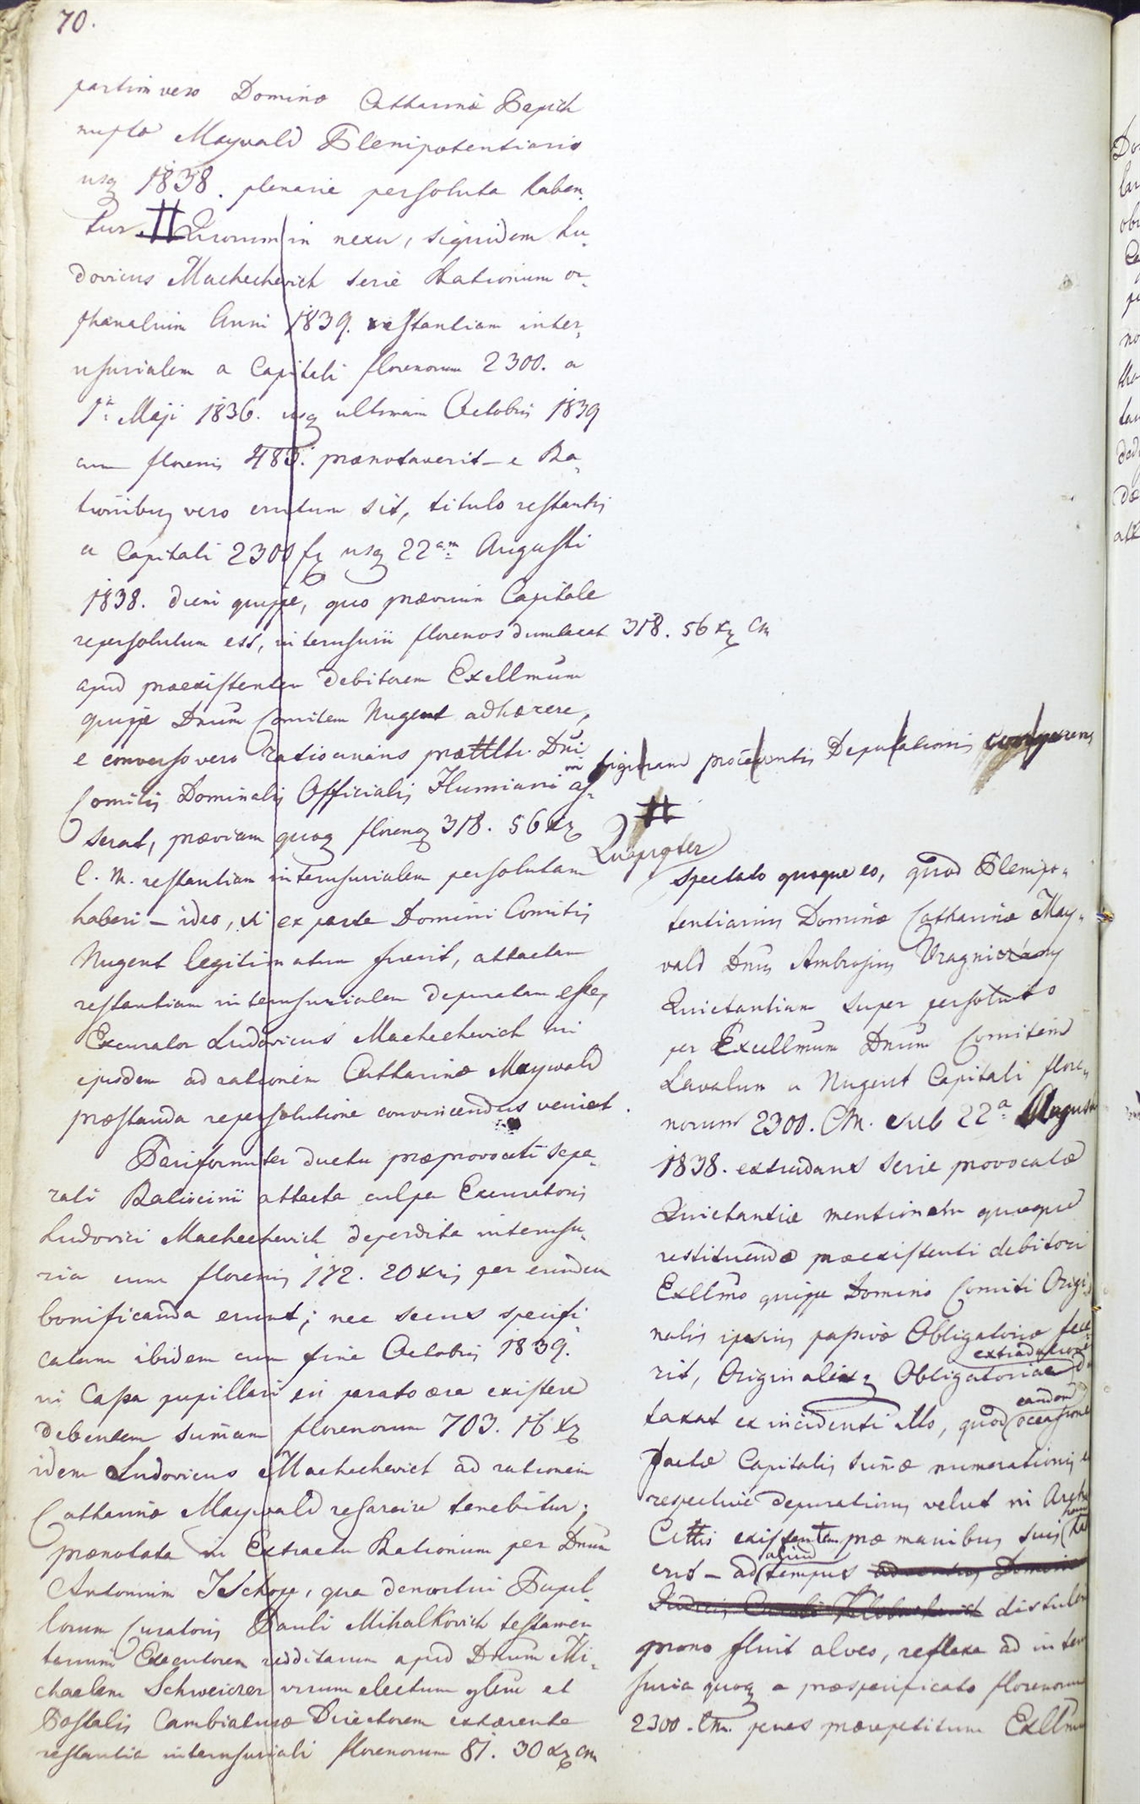 70.
partim vero Dominæ Catharinæ Pepich
nuptæ Maywald Plenipotentiario
usq 1838. plenarie persoluta haben¬
tur. # Quorum in nexu, siquidem Lu¬
dovicus Machechevich serie Rationum or¬
phanalium Anni 1839. restantiam inter¬
usurialem a Capitali florenorum 2300. a
1a Maji 1836. usq ultimam Octobris 1839
cum florenis 483. prænotaverit – e Ra¬
tionibus vero erutum sit, titulo restantis
a Capitali 2300 fl usq 22am Augusti
1838. diem quippe, quo prævium Capitale
repersolutum est, interusurii florenos dumtaxat 318. 56 xr Cm
apud præexistentem debitorem Exellmum
quippe Dnum Comitem Nugent adhærere,
e converso vero ratiocinans prætitlti Dni
Comitis Dominalis Officialis Flumiani in as¬
serat, præviam quoq florenos 318. 56 xr
C. M. restantiam interusurialem persolutam
haberi – ideo, si ex parte Domini Comitis
Nugent legitimatum fuerit, attactam
restantiam interusurialem depuratam esse,
Excurator Ludovicus Machechevich in
ejusdem ad rationem Catharinæ Maywald
præstanda repersolutione convincendus veniet.
Pariformiter ductu præprovocati sepa¬
rati Ratiocinii attacta culpa Excuratoris
Ludovici Machechevich deperdita interusu¬
ria cum florenis 172. 20 xris per eundem
bonificanda erunt; nec secus specifi
catam ibidem cum fine Octobris 1839.
in Cassa pupillari in parato ære existere
debentem sumam florenorum 703. 16 xr
idem Ludovicus Machechevich ad rationem
Catharinæ Maywald resarcire tenebitur;
prænotata in Extractu Rationum per Dnum
Antonium Tschopp, qua denortui Pupil¬
lorum Curatoris Pauli Mihalkovich testamen
tarium Executorem redditarum apud Dnum Mi¬
chaelem Schweizer virum electum glem et
Postalis Cambiaturæ Directorem exhærente
restantia interusuriali florenorum 81. 30 xr Cm
figitrand procedentis Deputationis comparens
#
Quapropter
spectato quoque eo, quod Plenipo¬
tentiarius Dominæ Catharinæ May¬
vald Dnus Ambrosius Vragniczány
Quietantiam super persoluto
per Excellmum Dnum Comitem
Lavalum a Nugent Capitali flore¬
norum 2300. Cm. sub 22a Augusti
1838. extradans serie provocatæ
Quietantiæ mentionem quoque
restituendæ præexistenti debitori
Exllmo quippe Domino Comiti Origi¬
nalis ipsius passivæ Obligatoriæ fece¬
rit, Originalisq Obligatoriæ extradationem
taxat ex incidenti illo, quod eandem occasione
factæ Capitalis sumæ numerationis
respectivæ depurationis, velut in Archivo
Cittis existentem præ manibus suis
erit – ad aliud tempus adventus Domini
distulerit
prono fluit alveo, reflexe ad interu
suria quoq a præspecificato florenorum
2300. Cm. penes præreptitum Exllmum